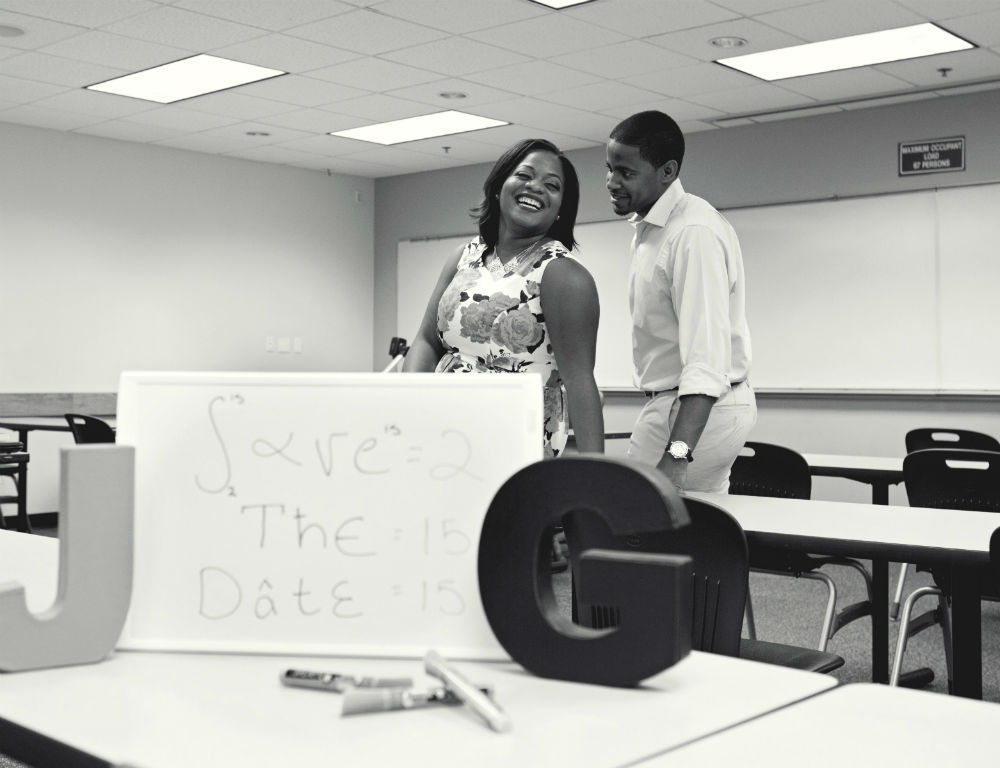 MAXIMUM OCCUPANT
LOAD
67 PERSONS
∫₂¹⁵ αve¹⁵ = 2
ThE = 15
DâtE = 15
J G